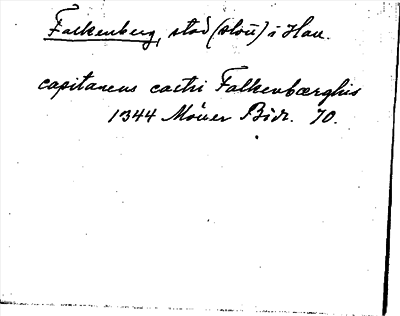 Falkenberg, stad (slott) i Hall.
capitaneus castri Falkenbærghis
1344 Möller Bidr. 70.